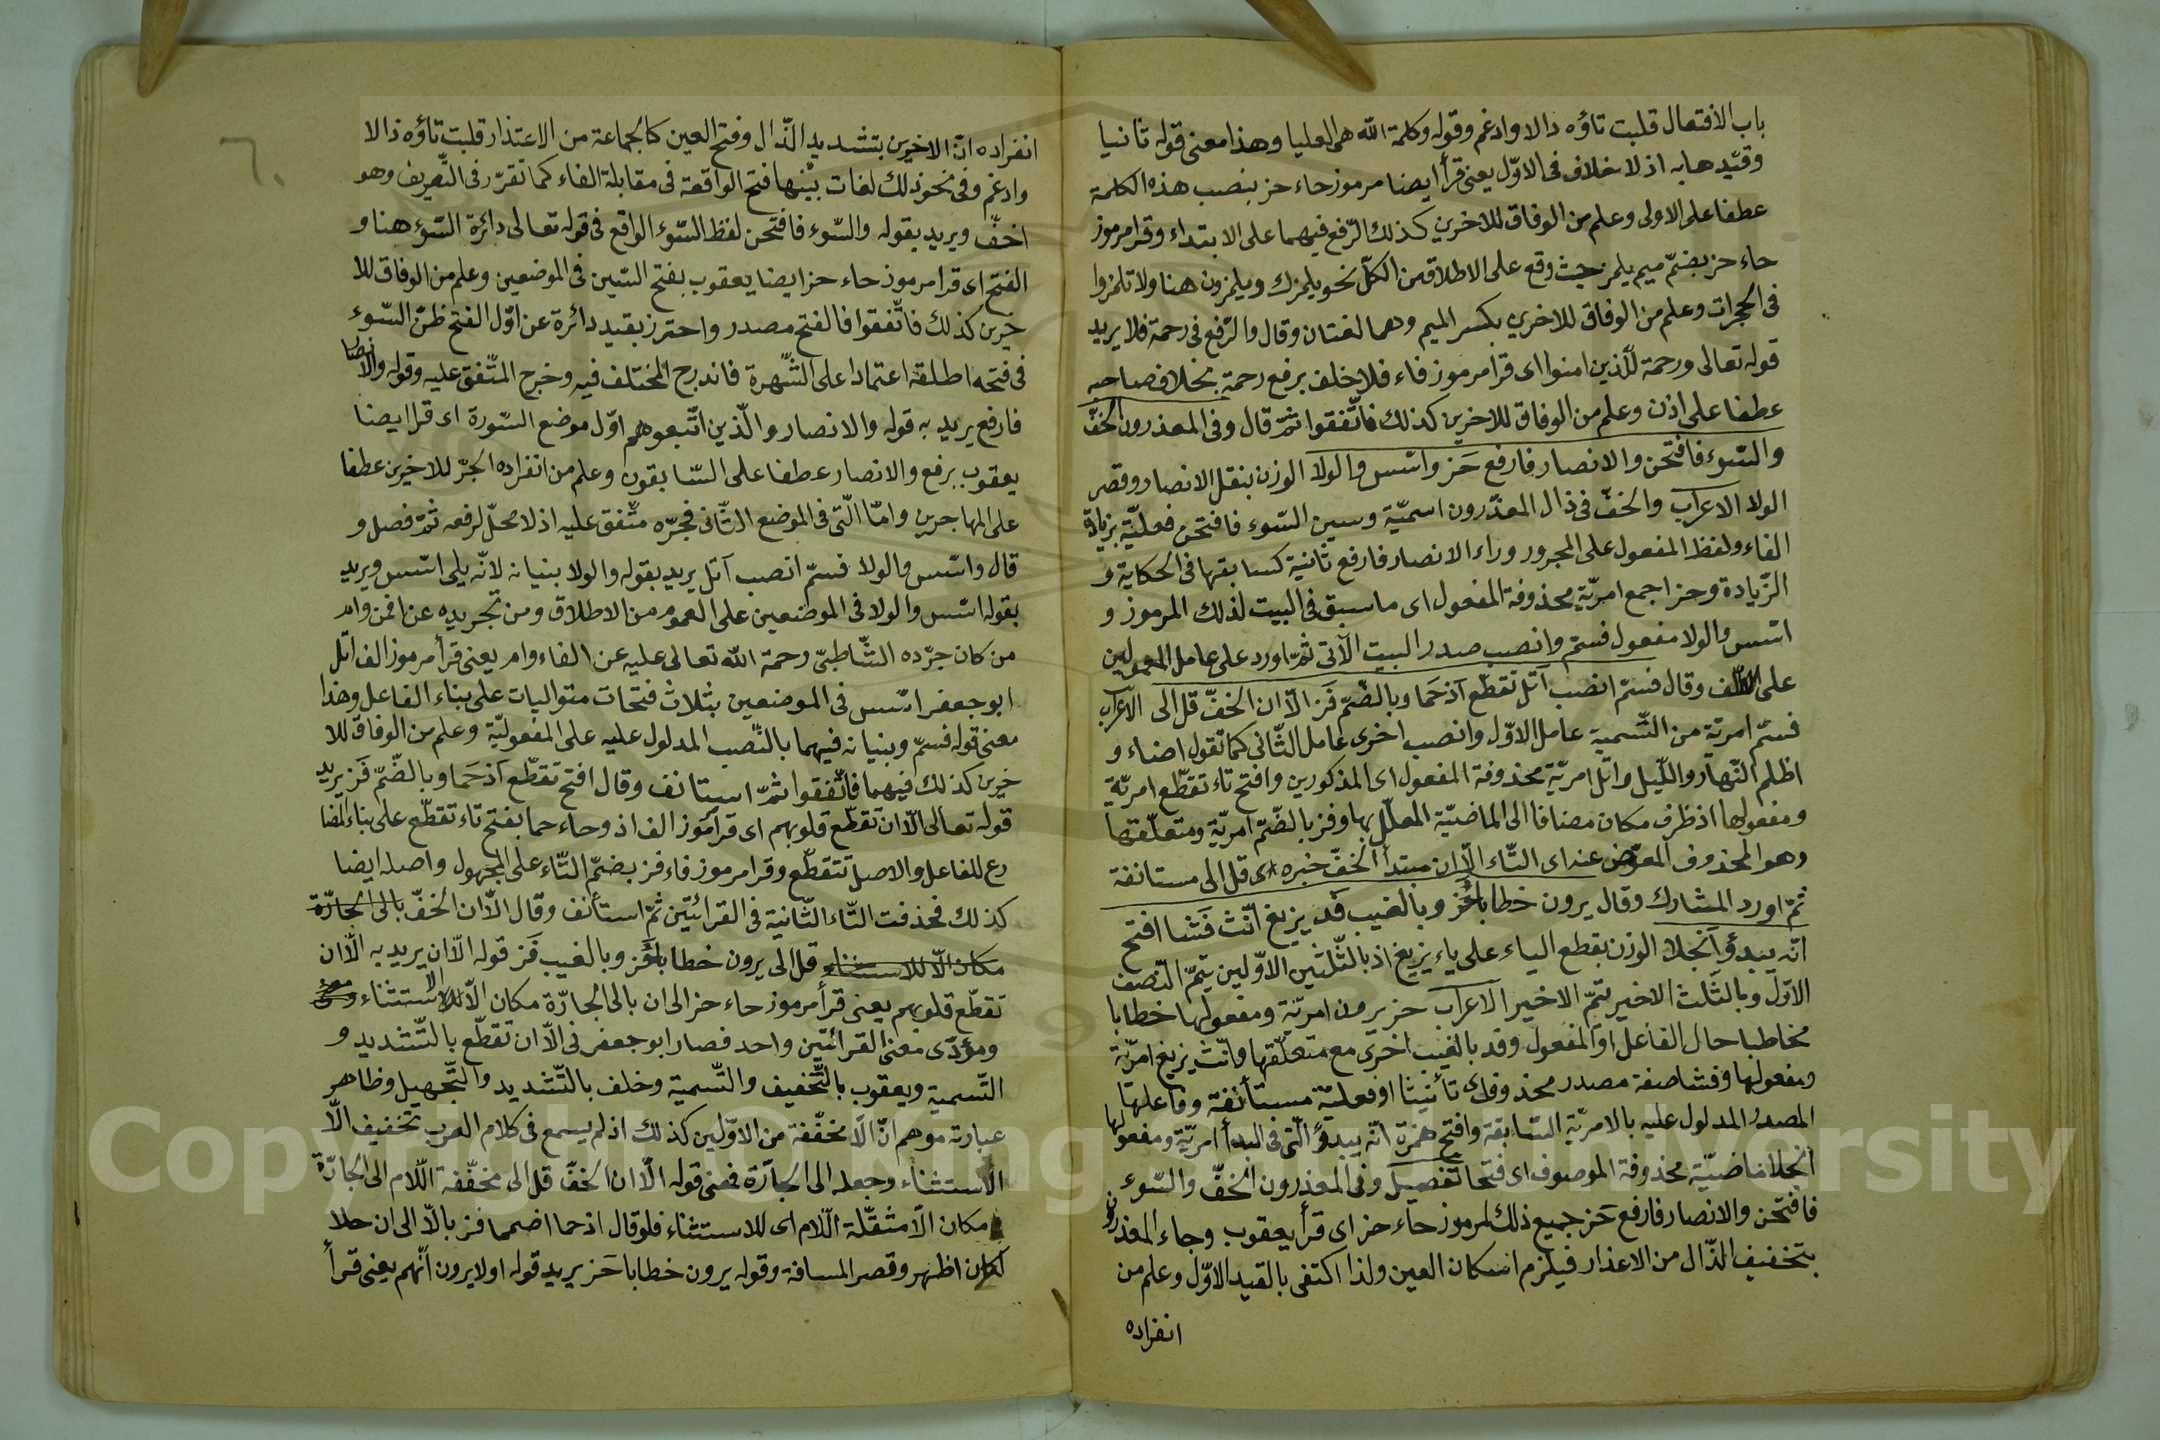 باب الافتعال قلبت تاؤه ذالا وادغم وقوله وكلمة الله هى العليا وهذا معنى قوله ثانيا
وقيّدها به اذ لا خلاف فى الاوّل يعنى قرأ ايضا مرموز حاء حز بنصب هذه الكلمة
عطفا على الاولى وعلم من الوفاق للاخرين كذلك الرّفع فيهما على الابتداء وقرا مرموز
حاء حز بضمّ ميم يلمز حيث وقع على الاطلاق من الكلّ نحو يلمزك ويلمزون هنا ولا تلمزوا
فى الحجرات وعلم من الوفاق للاخرين بكسر الميم وهما لغتان وقال والرّفع فى رحمة فلا يريد
قوله تعالى ورحمة للّذين امنوا اى قرا مرموز فاء فلا خلف برفع رحمة بخلاف صاحبه
عطفا على اذن وعلم من الوفاق للاخرين كذلك فاتّفقوا ثمّ قال وفى المعذرون الخفّ
والسّوء فافتحن والانصار فارفع حَز واسّس والولا الوزن بنقل الانصار وقصر
الولا الاعراب والخفّ فى ذال المعذّرون اسميّة وسين السّوء فافتحن فعليّة بزيادة
الفاء ولفظ المفعول على المجرور وراء الانصار فارفع ثانية كسابقها فى الحكاية و
الزّيادة وحز اجمع امريّة محذوفة المفعول اى ما سبق فى البيت لذلك المرموز و
اسّس والولا مفعول فسمّ وانصب صدر البيت الآتى ثمّ اورد على عامل المعمولين
على وقال فسمّ انصب آتل تقطّع آذ حَما وبالضّمّ فَز الّا ان الخفّ قل الى الاعراب
فسمّ امريّة من التّسمية عامل الاوّل وانصب اخرى عامل الثّانى كما تقول اضاء و
اظلم النّهار والّليل واتل امريّة محذوفة المفعول اى المذكورين وافتح تاء تقطّع امريّة
ومفعولها اذ ظرف مكان مضافا الى الماضيّة المعلّل بها وفز بالضّمّ امريّة ومتعلّقها
وهو المحذوف المعوّض عنه اى التّاء الّا ان مبتدأ الخفّ خبره اى قل الى مستانفة
ثمّ اورد المشارك وقال يرون خطابا حُز وبالغيب فد يزيغ انّث فَشا افتح
انّه يبدؤ آنجلا الوزن بقطع الياء على ياء يزيغ اذ بالثّلثين الاوّلين يتمّ النّصف
الاوّل وبالثّلث الاخير يتمّ الاخير الاعراب حز يرون امريّة ومفعولها خطابا
مخاطبا حال الفاعل او المفعول وفد بالغيب اخرى مع متعلّقها وانّث يزيغ امريّة
ومفعولها وفشا صفة مصدر محذوف اى تأنيثا او فعليّة مستأنفة وفاعلها
المصدر المدلول عليه بالامريّة السّابقة وافتح همزة انّه يبدؤ الّتى فى البدأ امريّة ومفعولها
انجلا ماضيّة محذوفة الموصوف اى فتحا تفصيل وفى المعذرون الخفّ والسّوء
فافتحن والانصار فارفع حَز جميع ذلك لمرموز حاء حز اى قرأ يعقوب وجاء المعذرون
بتخفيف الذّال من الاعذار فيلزم اسكان العين ولذا اكتفى بالقيد الاوّل وعلم من
انفراده
٦٠
انفراده انّ الاخرين بتشديد الذّال وفتح العين كالجماعة من الاعتذار قلبت تاؤه ذالا
وادغم وفى نحو ذلك لغات بيّنها فتح الواقعة فى مقابلة الفاء كما تقرّر فى التّعريف وهو
اخفّ ويريد بقوله والسّوء فافتحن لفظ السّوء الواقع فى قوله تعالى دائرة السّوء هنا و
الفتح اى قرا مرموز حاء حز ايضا يعقوب بفتح السّين فى الموضعين وعلم من الوفاق للا
خرين كذلك فاتّفقوا فالفتح مصدر واحترز بقيد دائرة عن اوّل الفتح ظنّ السّوء
فى فتحه اطلقه اعتمادا على الشّهرة فاندرج المختلف فيه وخرج المتّفق عليه وقوله والانصار
فارفع يريد به قوله والانصار والّذين اتّبعوهم اوّل موضع السّورة اى قرا ايضا
يعقوب برفع والانصار عطفا على السّابقون وعلم من انفراده الجرّ للاخرين عطفا
على المهاجرين وامّا الّتى فى الموضع الثّانى فجرّه متّفق عليه اذ لا محلّ لرفعه ثمّ فصل و
قال واسّس والولا فسمّ انصب آتل يريد بقوله والولا بنيانه لانّه يلى اسّس ويريد
بقوله اسّس والولا فى الموضعين على العموم من الاطلاق ومن تجريده عن افمن وام
من كان جرّده الشّاطبىّ رحمة الله تعالى عليه عن الفاء وام يعنى قرأ مرموز الف اتل
ابو جعفر اسّس فى الموضعين بثلاث فتحات متواليات على بناء الفاعل وهذا
معنى قوله فسمّ وبنيانه فيهما بالنّصب المدلول عليه على المفعوليّة وعلم من الوفاق للا
خرين كذلك فيهما فاتّفقوا ثمّ استانف وقال افتح تقطّع آذ حَما وبالضّمّ فَز يريد
قوله تعالى الّا ان تقطّع قلوبهم اى قرا مرموز الف اذ وحاء حما بفتح تاء تقطّع على بناء المضا
رع للفاعل والاصل تتقطّع وقرا مرموز فاء فز بضمّ التّاء على المجهول واصله ايضا
كذلك فحذفت التّاء الثّانية فى القرائتين ثمّ استأنف وقال الّا ان الخفّ بالى الجارّة
مكان الّا للاستثناء قل الى يرون خطابا حُز وبالغيب فَز قوله الّا ان يريد به الّا ان
تقطّع قلوبهم يعنى قرأ مرموز حاء حز الى ان بالى الجارّة مكان الّا الاستثناء
ومؤدّى معنى القرائتين واحد فصار ابو جعفر فى الّا ان تقطّع بالتّشديد و
التّسمية ويعقوب بالتّخفيف والتّسمية وخلف بالتّشديد والتّجهيل وظاهر
عبارته موهم انّ الّا مخفّفة من الاوّلين كذلك اذ لم يسمع فى كلام العرب تخفيف الّا
الاستثناء وجعله الى الجارّة فمعنى قوله الّا ان الخفّ قل الى مخفّفة الّلام الى الجارّة
مكان الّا مثقّلة الّلام اى للاستثناء فلو قال اذ حما اضمما فز بالّا الى ان حلا
لكان اظهر وقصر المسافة وقوله يرون خطابا حَز يريد قوله اولا يرون انّهم يعنى قرأ
Copyright © King Saud University